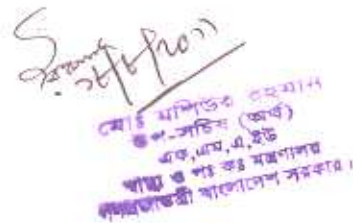 ২৮/৮/২০১১
মোঃ মশিউর রহমান
উপ-সচিব (অর্থ)
এফ,এম,এ,ইউ
স্বাস্থ্য ও পঃ কঃ মন্ত্রণালয়
গণপ্রজাতন্ত্রী বাংলাদেশ সরকার।